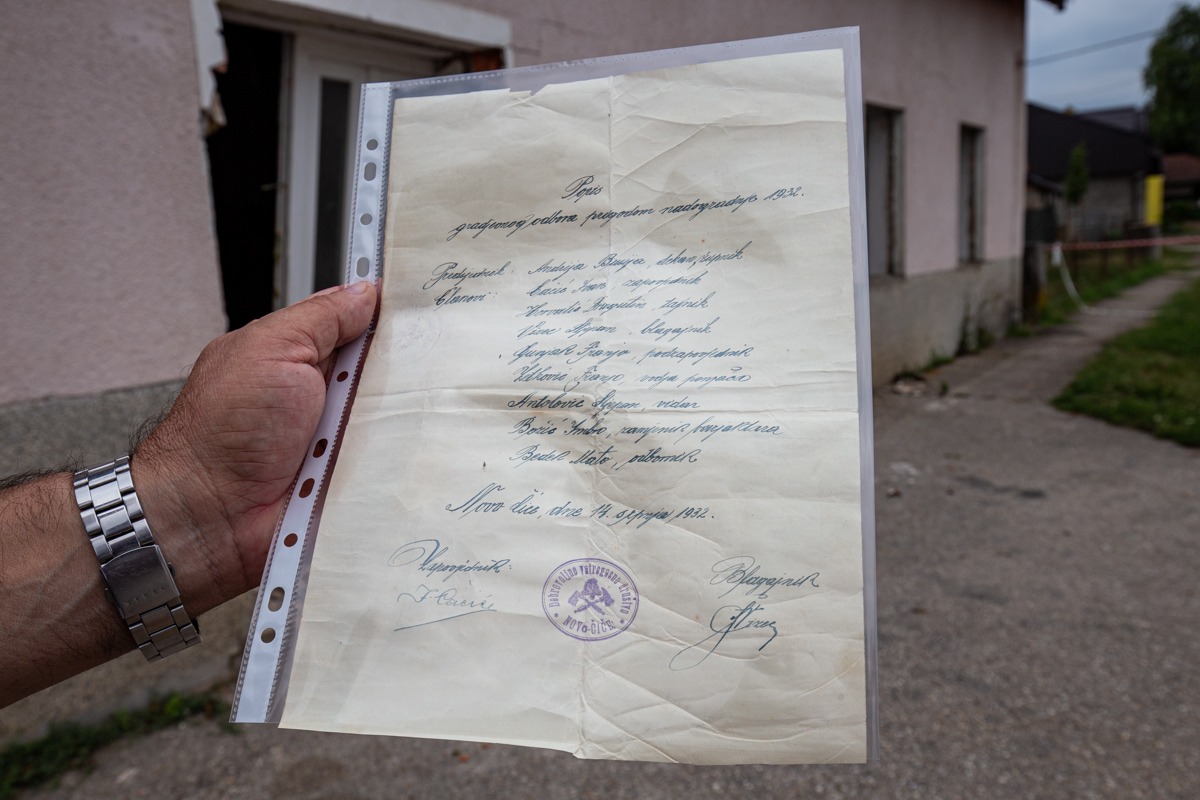 Popis
građevnog odbora prigodom nadogradnje 1932.
Predsjednik: Andrija, župnik
Članovi: Cacić Ivan, zapovjednik
Horvatić Augustin, tajnik
Stjepan, blagajnik
Franjo, podzapovjednik
Franjo, vodja penjača
Antolović Stjepan, vidar
Božić Imbro, zamjenik barjaktara
Bedek Mato, odbornik
Novo Čiče, dne 14. srpnja 1932.
Zapovjednik: Blagajnik
I Cacić
Dobrovoljno vatrogasno društvo
NOVO-ČIČE